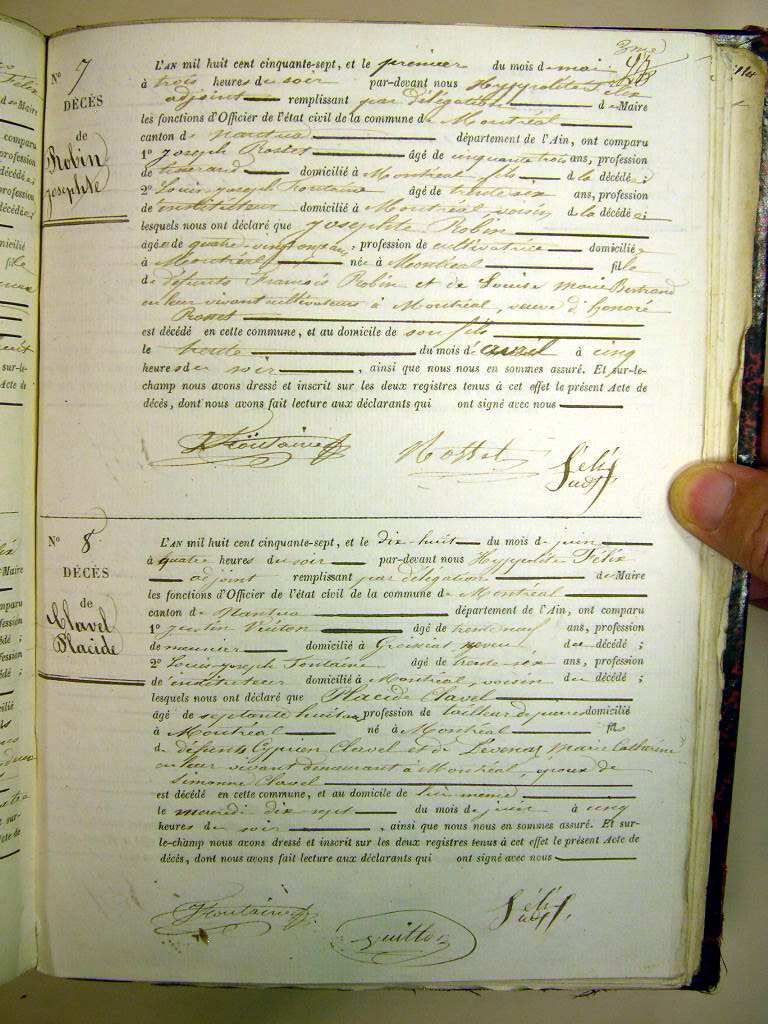 2me
N° 7
DÉCÈS
de
Robin
Josephte
L'AN mil huit cent cinquante-sept, et le premier du mois de mai
à trois heures du soir par-devant nous Hyppolite Félix
adjoint remplissant par délégation de Maire
les fonctions d'Officier de l'état civil de la commune de Montréal
canton de Nantua département de l'Ain, ont comparu
1° Joseph Rosset âgé de cinquante trois ans, profession
de tisserand domicilié à Montréal fils de la décédée ;
2° Louis-joseph Fontaine âgé de trente six ans, profession
de instituteur domicilié à Montréal voisin de la décédée ;
lesquels nous ont déclaré que Josephte Robin
âgée de quatre-vingt ans, profession de cultivatrice domiciliée
à Montréal née à Montréal fille
de défunts François Robin et de Louise Marie Bertrand
en leur vivant cultivateurs à Montréal, veuve d'honoré
Rosset
est décédé en cette commune, et au domicile de son fils
le trente du mois d'avril à cinq
heures du soir , ainsi que nous nous en sommes assuré. Et sur-le-
champ nous avons dressé et inscrit sur les deux registres tenus à cet effet le présent Acte de
décès, dont nous avons fait lecture aux déclarants qui ont signé avec nous
Fontaine Rosset Félix
adj
N° 8
DÉCÈS
de
Clavel
Placide
L'AN mil huit cent cinquante-sept, et le dix-huit du mois de juin
à quatre heures du soir par-devant nous Hyppolite Félix
adjoint remplissant par délégation de Maire
les fonctions d'Officier de l'état civil de la commune de Montréal
canton de Nantua département de l'Ain, ont comparu
1° justin âgé de trente neuf ans, profession
de meunier domicilié à Groissiat neveu du décédé ;
2° Louis-joseph Fontaine âgé de trente-six ans, profession
de instituteur domicilié à Montréal, voisin du décédé ;
lesquels nous ont déclaré que Placide Clavel
âgé de septante huit ans profession de tailleur de pierres domicilié
à Montréal né à Montréal fils
de défunts Cyprien Clavel et de Levenaz Marie Catherine
en leur vivant demeurant à Montréal, époux de
Simonne Clavel
est décédé en cette commune, et au domicile de lui même
le mercredi dix sept du mois de juin à cinq
heures du soir , ainsi que nous nous en sommes assuré. Et sur-
le-champ nous avons dressé et inscrit sur les deux registres tenus à cet effet le présent Acte de
décès, dont nous avons fait lecture aux déclarants qui ont signé avec nous
Fontaine Félix
adj